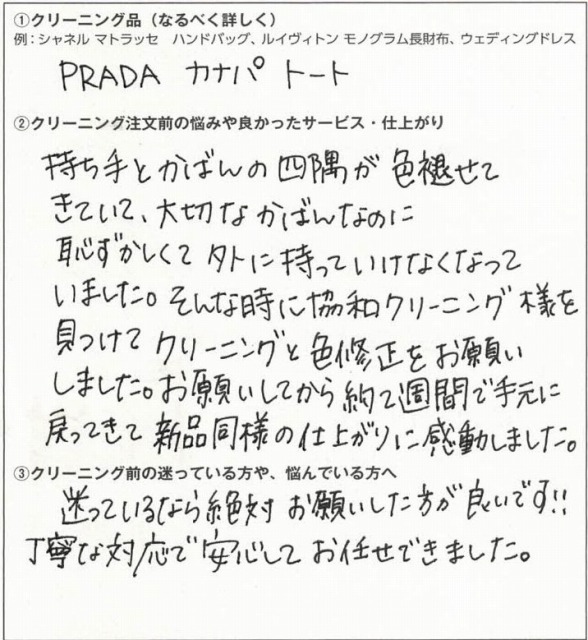 ①クリーニング品（なるべく詳しく）
例：シャネル マトラッセ ハンドバッグ、ルイヴィトン モノグラム長財布、ウェディングドレス
PRADA カナパ トート
②クリーニング注文前の悩みや良かったサービス・仕上がり
持ち手とかばんの四隅が色褪せて
きていて、大切なかばんなのに
恥ずかしくて外に持っていけなくなって
いました。そんな時に協和クリーニング様を
見つけてクリーニングと色修正をお願い
しました。お願いしてから約2週間で手元に
戻ってきて新品同様の仕上がりに感動しました。
③クリーニング前の迷っている方や、悩んでいる方へ
迷っているなら絶対お願いした方が良いです!!
丁寧な対応で安心してお任せできました。